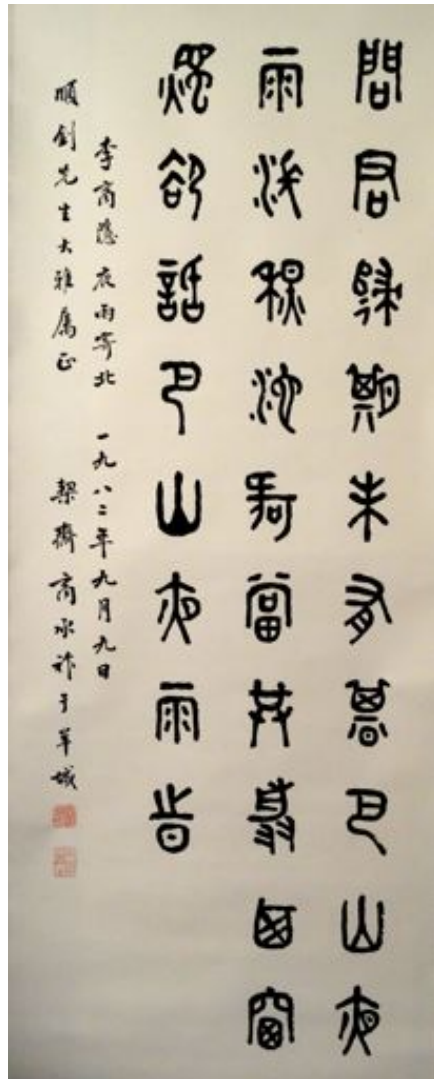 問君歸期未有期巴山夜
雨漲秋池何當共剪西窗
燭卻話巴山夜雨時
李商隱夜雨寄北 一九八二年九月九日
順先生大雅屬正 契齋商承祚于羊城